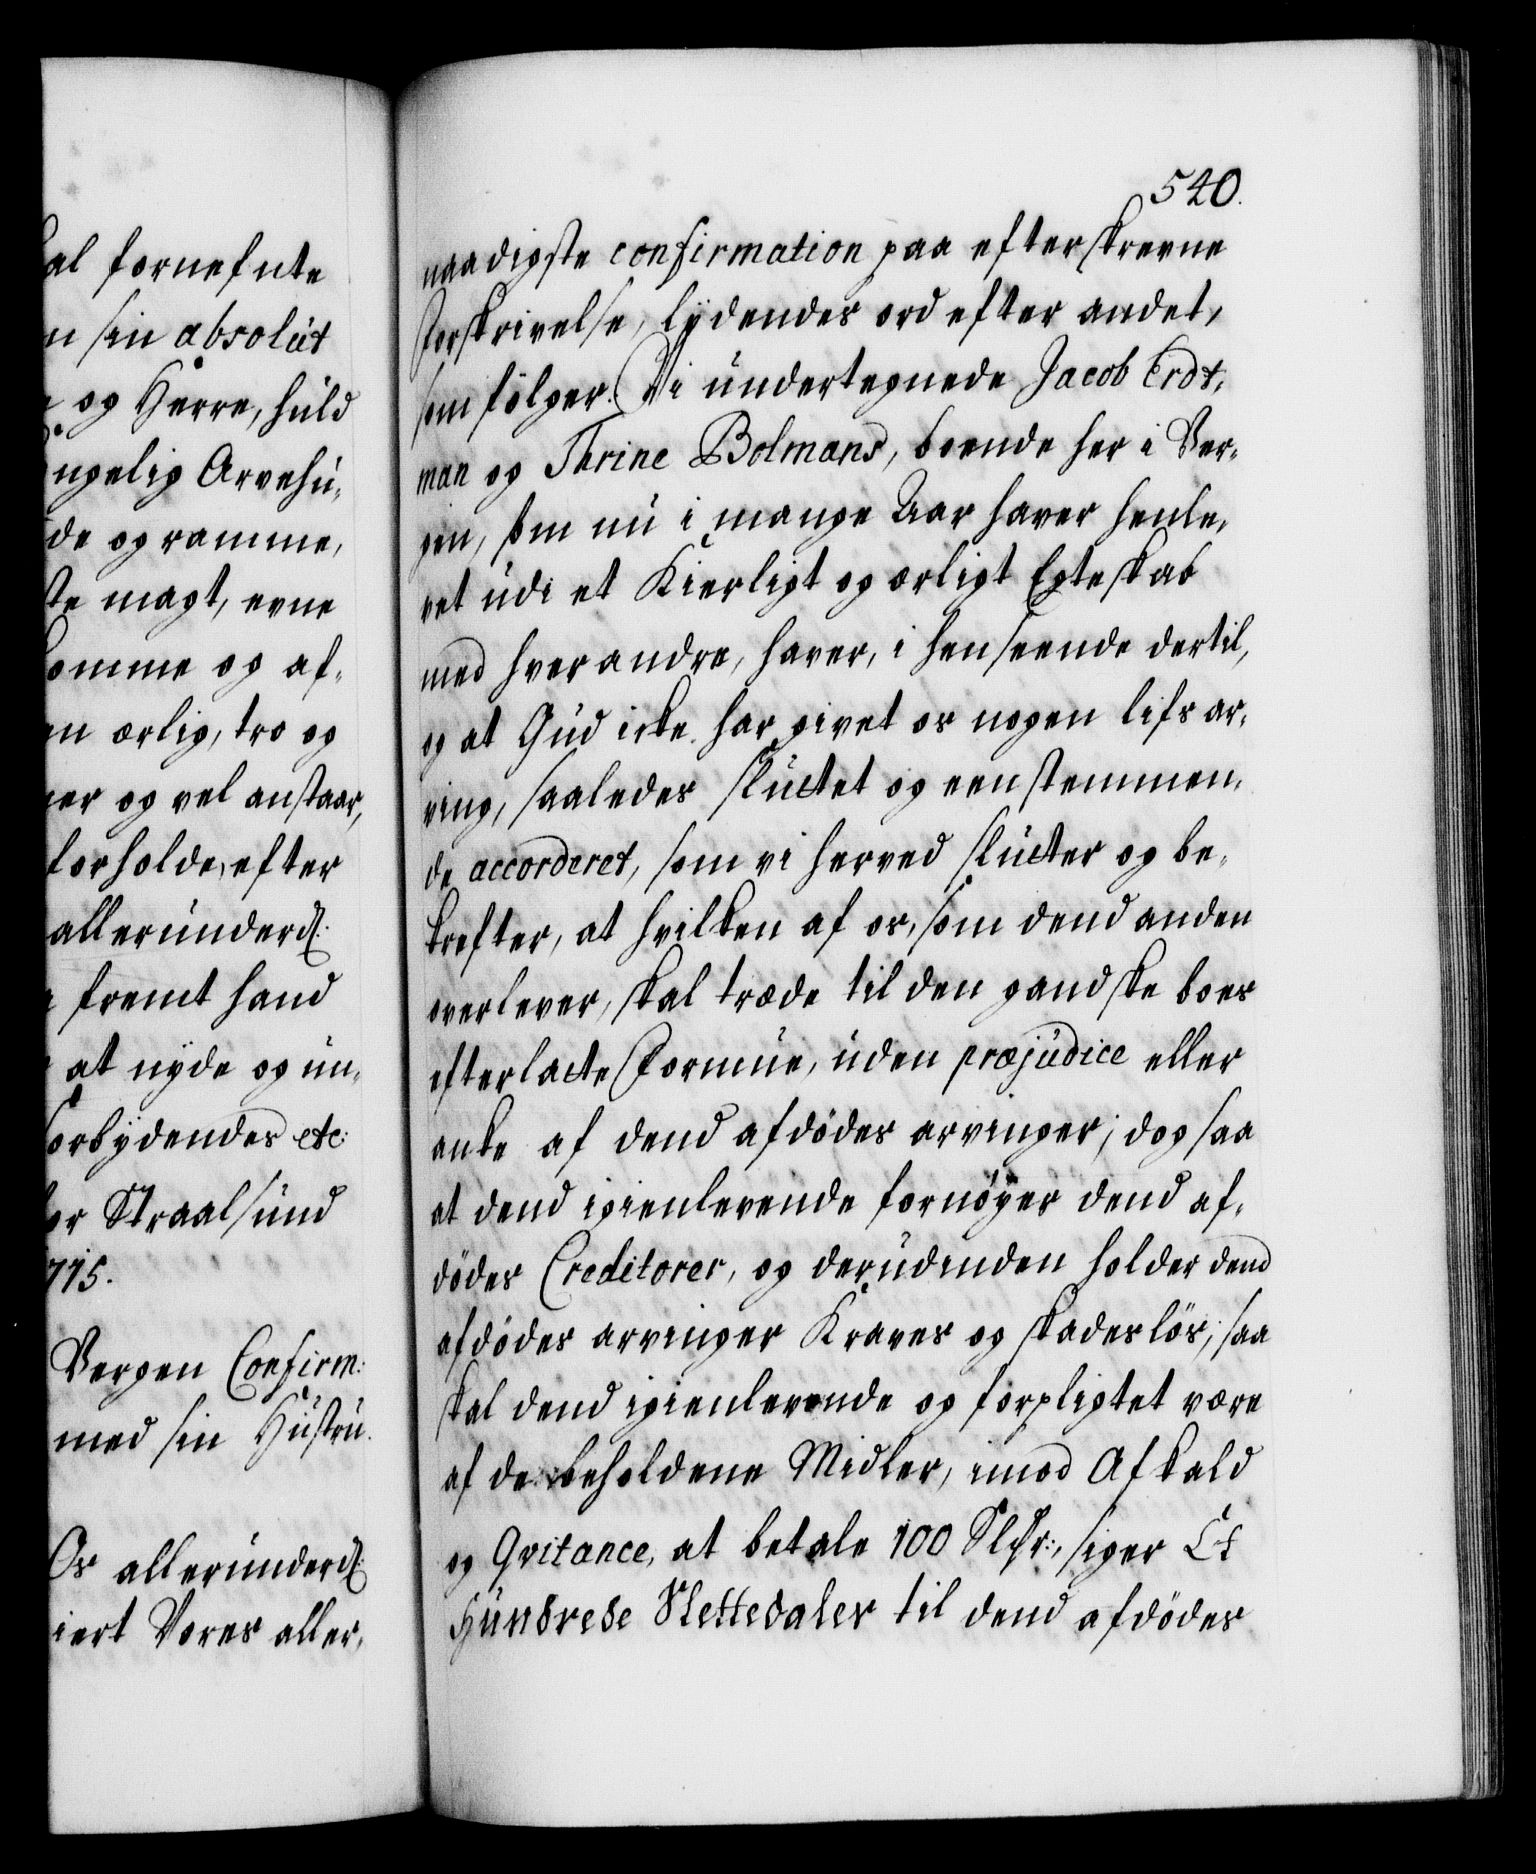 al fornefnte
n sin absolut
e og Herre, huld
ngelig Arvehu,
de og ramme,
ste magt, evne
komme og af,
en ærlig, tro og
ner og vel anstaar,
forholde, efter
allerunderd.
fremt hand
at nyde og un,
Forbydendes etc:
for Straalsund
1715.
Bergen Confirm:
med sin Hustru.
Os allerunderd:
iert Vores aller,
540.
naadigste confirmation paa efterskrevne
forskrivelse, lydendes ord efter andet,
som fölger. Vi undertegnede Jacob Erdt,
man og Thrine Bolmans, boende her i Ber,
gen, som nu i mange Aar haver henle,
vet udi et Kierligt og ærligt Egteskab
med hverandre, haver, i henseende dertil,
og at Gud icke har givet os nogen lifs ar,
ving, saaledes sluttet og eenstemmen,
de accorderet, som vi herved slutter og be,
krefter, at hvilken af os, som dend anden
overlever, skal træde til den gandske boes
efterlatte Formue, uden præjudice eller
anke af dend afdödes arvinger; dog saa
at dend igienlevende fornöyer dend af,
dödes Creditorer, og derudinden holder dend
afdödes arvinger Kraves og skadeslös; saa
skal dend igienlevende og forpligtet være
af de beholdene Midler, imod Afkald
og Qvitance, at betale 100 Sldr:, siger Et
Hundrede Slettedaler til dend afdödes